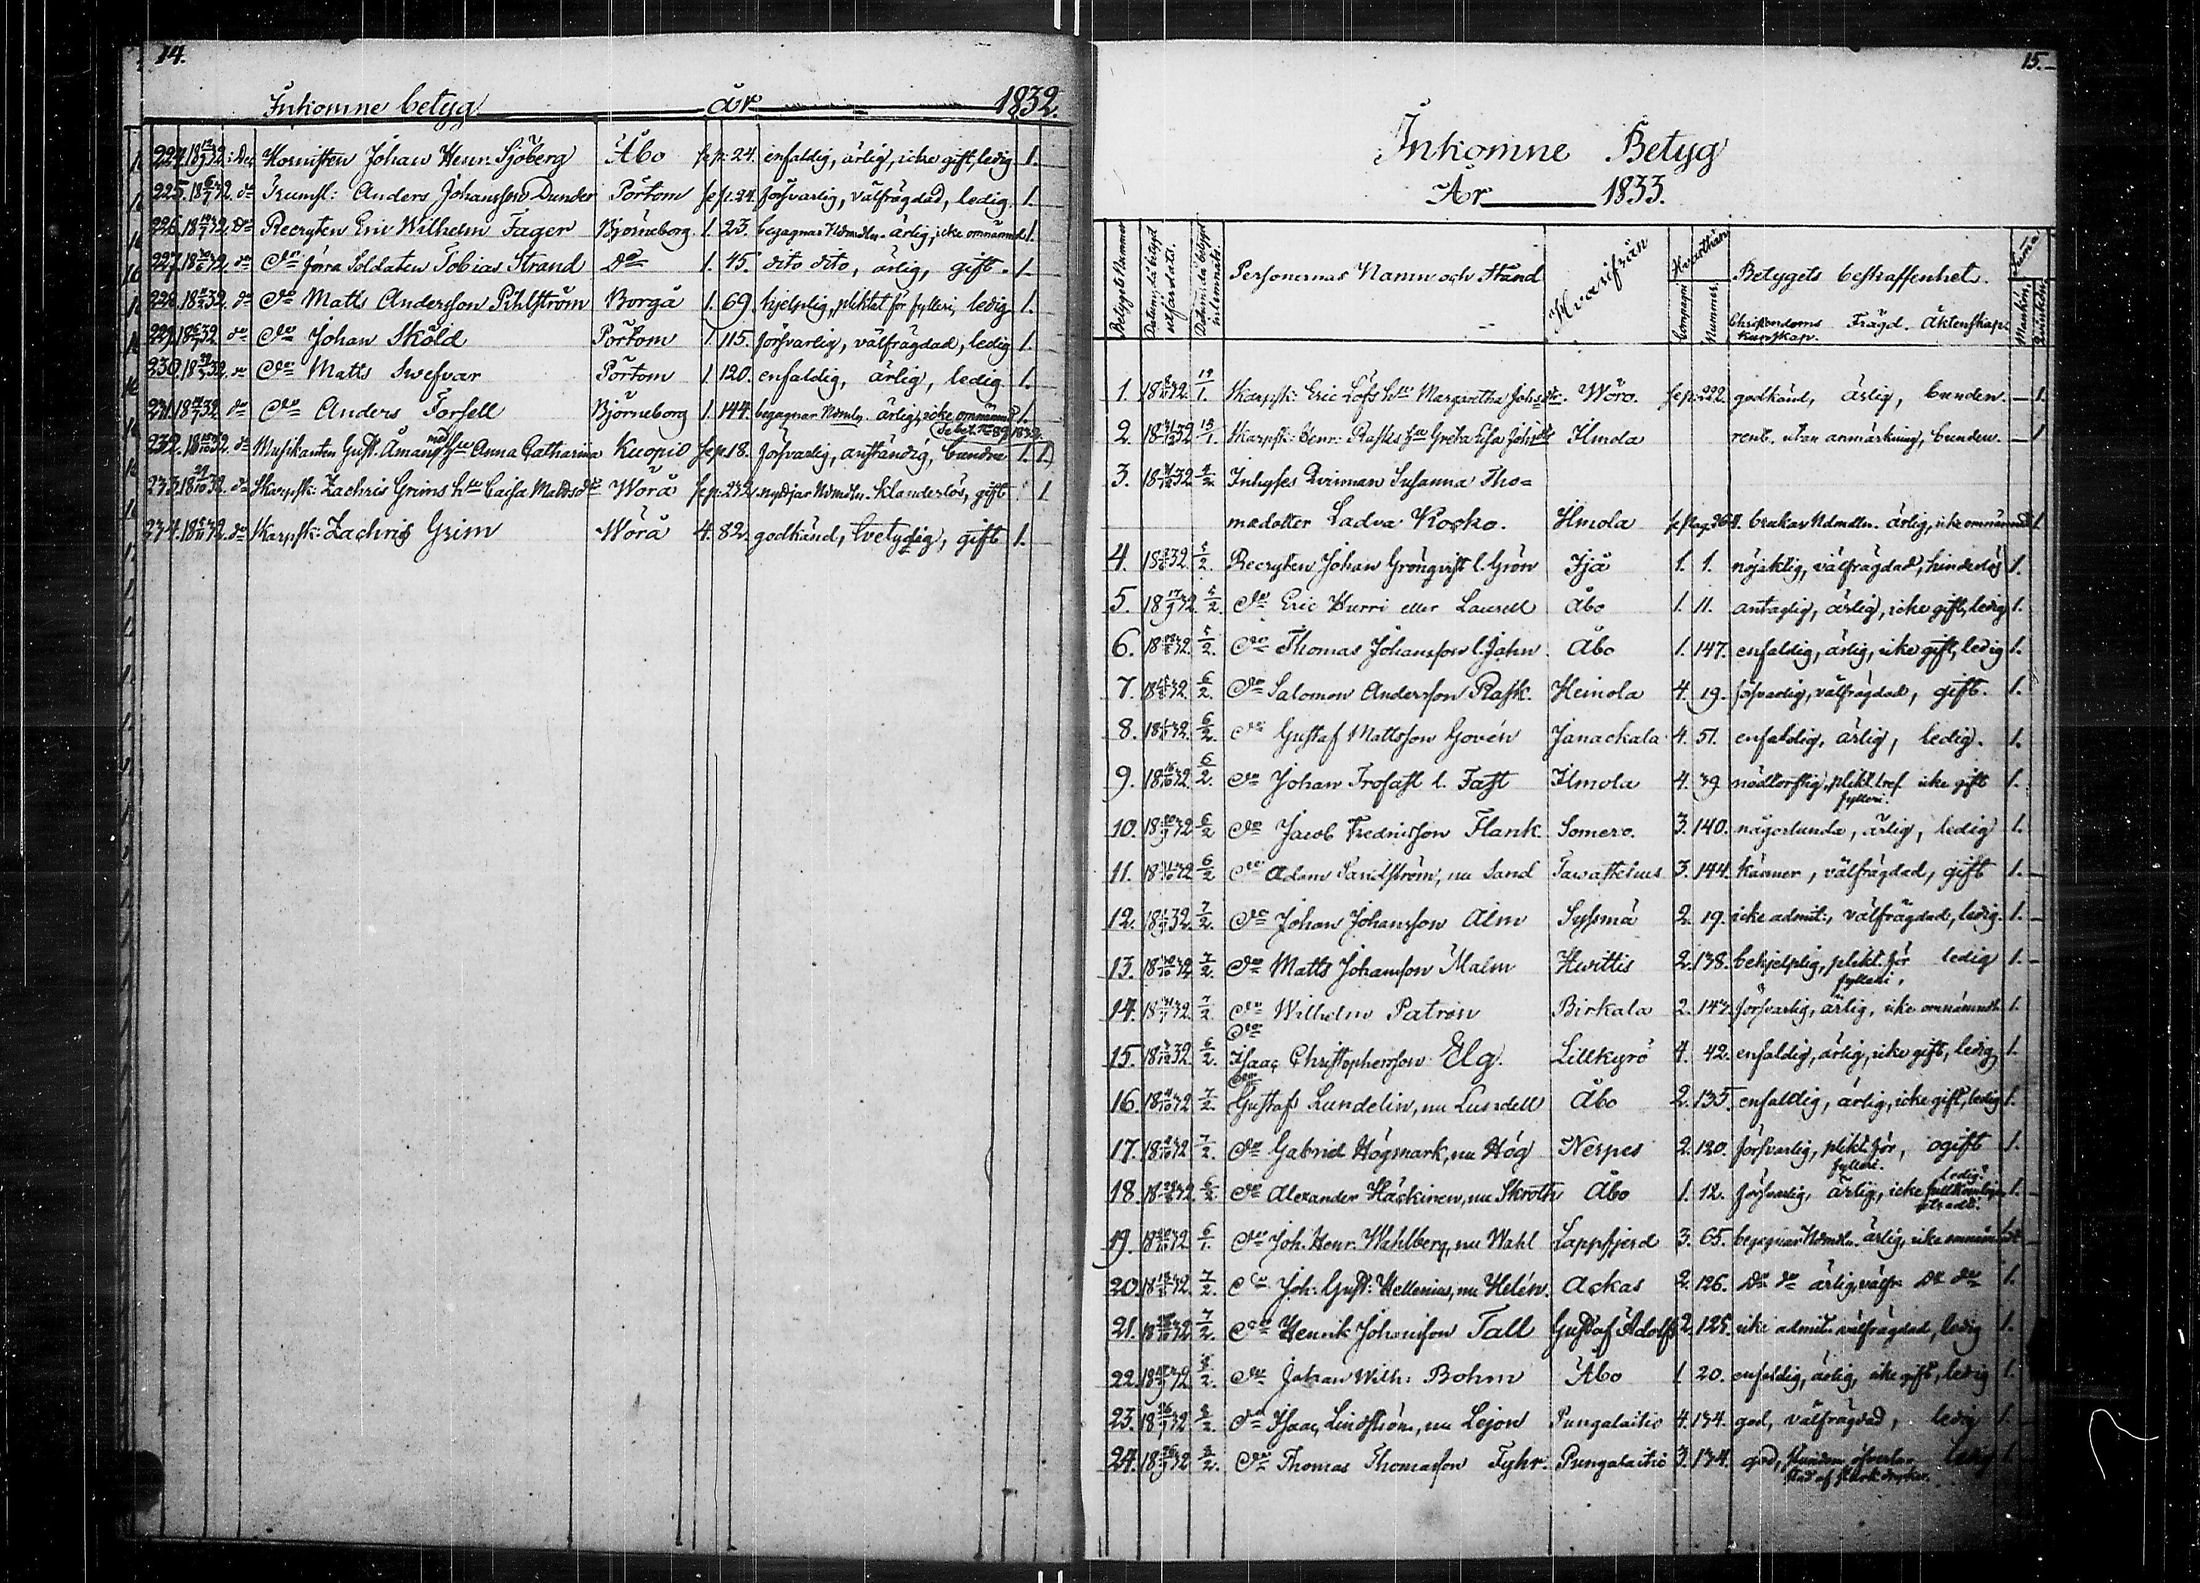 14.
Inkomne betyg år 1832.
224. 1832. Dec Hornisten Johan Henr. Sjöberg Åbo fep: 24. enfaldig, ärlig, icke gift, ledig 1.
225. 1832. do Trumsl: Anders Johansson Dunder Pörtom fep. 24. försvarlig, välfrägdad, ledig 1.
226. 1832. Do Recryten Eric Wilhelm Jager Björneborg 1. 23. begagnar Ndmdln. ärlig, icke omnämnd 1.
227. 1832. do Do förra Soldaten Tobias Strand Do 1. 45. dito dito, ärlig, gift. 1.
228. 1832. do Do Matts Andersson Pihlström Borgå 1. 69. hjelplig, pliktat för fylleri, ledig 1.
229. 1832. do Do Johan Sköld Pörtom 1. 115. försvarlig, välfrägdad, ledig 1.
230. 1832. do Do Matts Swefvar Pörtom 1. 120. enfaldig, ärlig, ledig 1.
231. 1832. do Do Anders Forsell Björneborg 1. 144. begagnar Ndmdln. ärlig, icke omnämnd 1.
Se bet. No 89 1832.
232. 1832. do Musikanten Gust. Åman med Hu Anna Catharina Kuopio fep. 18. försvarlig, anständig, bundna 1. 1.
233. 1832. do Skarpsk: Zachris Grims hu Caisa Mattsdr Wörå fep: 232. nyttjar Ndmdln. klanderlös, gift 1
234. 1832. do Skarpsk: Zachris Grim Wörå 4. 82. godkänd, tvetydig, gift 1.
15.
Inkomne Betyg
År 1833.
Betygets Nummer Datum, då betyget utfärdats. Datum, då betyget inlemnats. Personernas Namn och Stånd Hvarifrån Hvarthän Compagni Nummer. Betygets beskaffenhet. Christendoms Kunskap. Frägd. Äktenskap. Summa Mankön. Qvinkön.
1. 1832. 19/1. Skarpsk: Eric Löfs hu Margaretha Johsdr Wörå. fep: 222. godkänd, ärlig, bunden. 1.
2. 1832 13/1. Skarpsk: Henr: Rasks hu Greta Lisa Johsdr Ilmola rent. utan anmärkning, bunden. 1
3. 1832 Inhyses Qvinnan Susanna Tho=
madotter Ladva Kosko. Ilmola fep pag. 264. brukar Ndmdln. ärlig, icke omnämnd 1.
4. 1832 5/2. Recryten Johan Grönqvist l. Grön Ijå 1. 1. nöjaktig, välfrägdad, hinderlös 1.
5. 1832 5/2. Do Eric Hurri eller Laurell Åbo 1. 11. antaglig, ärlig, icke gift, ledig 1.
6. 1832. 5/2. Do Thomas Johansson l. John Åbo 1. 147. enfaldig, ärlig, icke gift, ledig 1.
7. 1832. 6/2. Do Salomon Andersson Rask. Heinola 4. 19. försvarlig, välfrägdad, gift. 1.
8. 1832. 6/2. Do Gustaf Mattsson Govén Janackala 4. 51. enfaldig, ärlig, ledig. 1.
9. 1832. 6/2. Do Johan Trofast l. Fast Ilmola 4. 39. nödtorftig, plikt. tref. fylleri. icke gift 1.
10. 1832 6/2 Do Jacob Fredricsson Flank Somero. 3. 140. någorlunda, ärlig, ledig 1.
11. 1832 6/2 Do Adam Sandström, nu Sand Tawastehus 3. 144. känner, välfrägdad, gift 1.
12. 1832. 7/2. Do Johan Johansson Alm Sysmä 2. 19. icke admit:, välfrägdad, ledig. 1.
13. 1832 7/2. Do Matts Johansson Malm Hwittis 2. 138. behjelplig, plikt. för fylleri, ledig 1.
14. 1832. 7/2 Do Wilhelm Patron Birkala 2. 147. försvarlig, ärlig, icke omnämndt 1.
15. 1832. 6/2. Do Isaac Christophersson Elg. Lillkyrö 4. 42. enfaldig, ärlig, icke gift, ledig 1.
16. 1832 7/2. Do Gustaf Lundelin, nu Lundell Åbo 2. 135. enfaldig, ärlig, icke gift, ledig 1.
17. 1832 7/2. Do Gabriel Högmark, nu Hög Nerpes 2. 120. försvarlig, plikt. för, fylleri. ogift 1.
18. 1832. 6/2. Do Alexander Häckinen, nu Skroth Åbo 1. 12. försvarlig, ärlig, icke ledig 1.
19. 1832 6/1. Do Joh. Henr. Wahlberg, nu Wahl Lappfjerd 3. 65. begagnar Ndmdln. ärlig, icke omnämnd
20. 1832. 7/2. Do Joh: Gust: Hellenius, nu Helén. Ackas 2. 126. Do do ärlig, välfr. Do do 1.
21. 1832 7/2. Do Henrik Johansson Tall Gustaf Adolfs 2. 125. icke admit. välfrägdad, ledig 1.
22. 1832 Do Johan Wilh: Bohm Åbo 1 20. enfaldig, ärlig, icke gift, ledig 1.
23. 1832 Do Isaac Lindström, nu Lejon Pungalaitio 4. 134. god, välfrägdad, ledig 1.
24. 1832 Do Thomas Thomasson Fyhr. Pungalaitio 3. 134. god, stundom öfverlastad af stark drycker. ledig 1